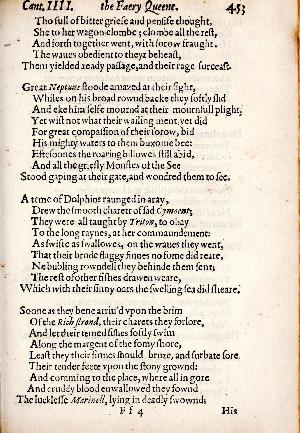 Cant. IIII. the Faery Queene. 453
Tho full of bitter griefe and pensife thought,
She to her wagon clombe; clombe all the rest,
And forth together went, with sorow fraught.
The waues obedient to theyr beheast,
Them yielded ready passage, and their rage surceast.
Great Neptune stoode amazed at their sight,
Whiles on his broad rownd backe they softly slid
And eke him selfe mournd at their mournfull plight,
Yet wist not what their wailing ment, yet did
For great compassion of their sorow, bid
His mighty waters to them buxome bee:
Eftesoones the roaring billowes still abid,
And all the griesly Monsters of the See
Stood gaping at their gate, and wondred them to see.
A teme of Dolphins raunged in aray,
Drew the smooth charett of sad Cymoent;
They were all taught by Triton, to obay
To the long raynes, at her commaundement:
As swifte as swallowes, on the waues they went,
That their brode flaggy finnes no fome did reare,
Ne bubling rowndell they behinde them sent;
The rest of other fishes drawen weare,
Which with their finny oars the swelling sea did sheare.
Soone as they bene arriu'd vpon the brim
Of the Rich strond, their charets they forlore,
And let their temed fishes softly swim
Along the margent of the fomy shore,
Least they their finnes should bruze, and surbate sore
Their tender feete vpon the stony grownd:
And comming to the place, where all in gore
And cruddy blood enwallowed they fownd
The lucklesse Marinell, lying in deadly swownd;
Ff 4 His